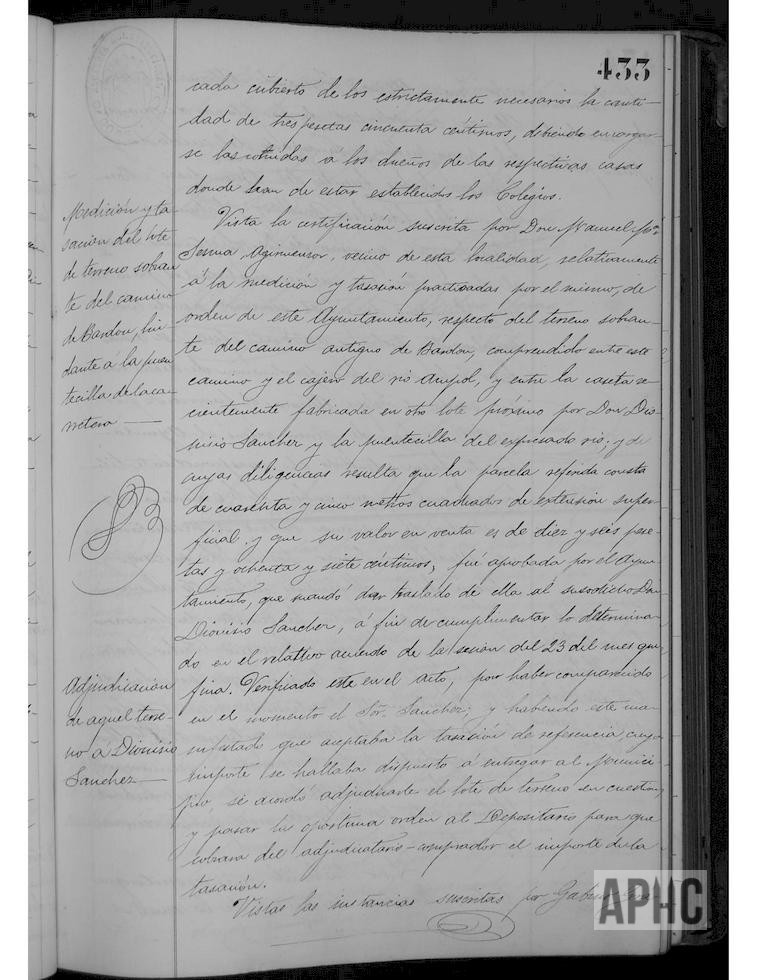 433
cada cubierto de los estrictamente necesarios la canti-
dad de tres pesetas cincuenta céntimos, debiendo encargar-
se las comidas á los dueños de las respectivas casas
donde han de estar establecidos los Colegios.
Medición y ta-
sación del lote
de terreno sobran-
te del camino
de Bardon, lin-
dante á la puen-
tecilla de la ca-
rretera
Vista la certificación suscrita por Don Manuel Mª
Agrimensor, vecino de esta localidad, relativamente
á la medición y tasación practicadas por el mismo, de
orden de este Ayuntamiento, respecto del terreno sobran-
te del camino antiguo de Bardon, comprendido entre este
camino y el cajero del rio Ampol, y entre la caseta re-
cientemente fabricada en otro lote próximo por Don Dio-
nisio Sanchez y la puentecilla del expresado rio; y de
cuyas diligencias resulta que la parcela referida consta
de cuarenta y cinco metros cuadrados de extensión super-
ficial y que su valor en venta es de diez y seis pese-
tas y ochenta y siete céntimos; fué aprobada por el Ayun-
tamiento, que mandó dar traslado de ella al susodicho Don
Dionisio Sanchez, á fin de cumplimentar lo determina-
do en el relativo acuerdo de la sesión del 23 del mes que
fina. Verificado este en el acto, por haber comparecido
en el momento el Sor. Sanchez; y habiendo este ma-
nifestado que aceptaba la tasación de referencia, cuyo
importe se hallaba dispuesto á entregar al Munici-
pio, se acordó adjudicarle el lote de terreno en cuestion,
y pasar la oportuna orden al Depositario para que
cobrara del adjudicatario-comprador el importe de la
tasación.
Adjudicación
de aquel terre-
no á Dionisio
Sanchez
Vistas las instancias suscritas por
APHC